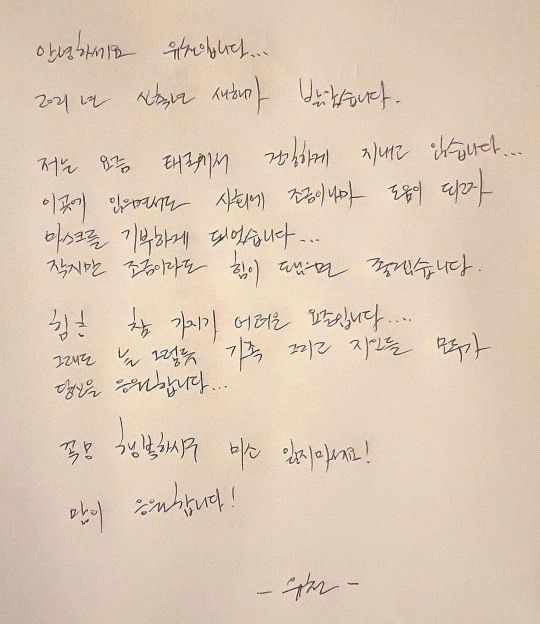 안녕하세요 유천입니다...
2021년 신축년 새해가 밝았습니다.
저는 요즘 태국에서 건강하게 지내고 있습니다...
이곳에 있으면서도 사회에 조금이나마 도움이 되고자
마스크를 기부하게 되었습니다...
작지만 조금이라도 힘이 됐으면 좋겠습니다.
힘든 참 가지기 어려운 요즘입니다....
그래도 늘 그렇듯 가족 그리고 지인들 모두가
당신을 응원합니다...
꼭 행복하시구 미소 잃지마세요!
많이 응원합니다!
- 유천 -